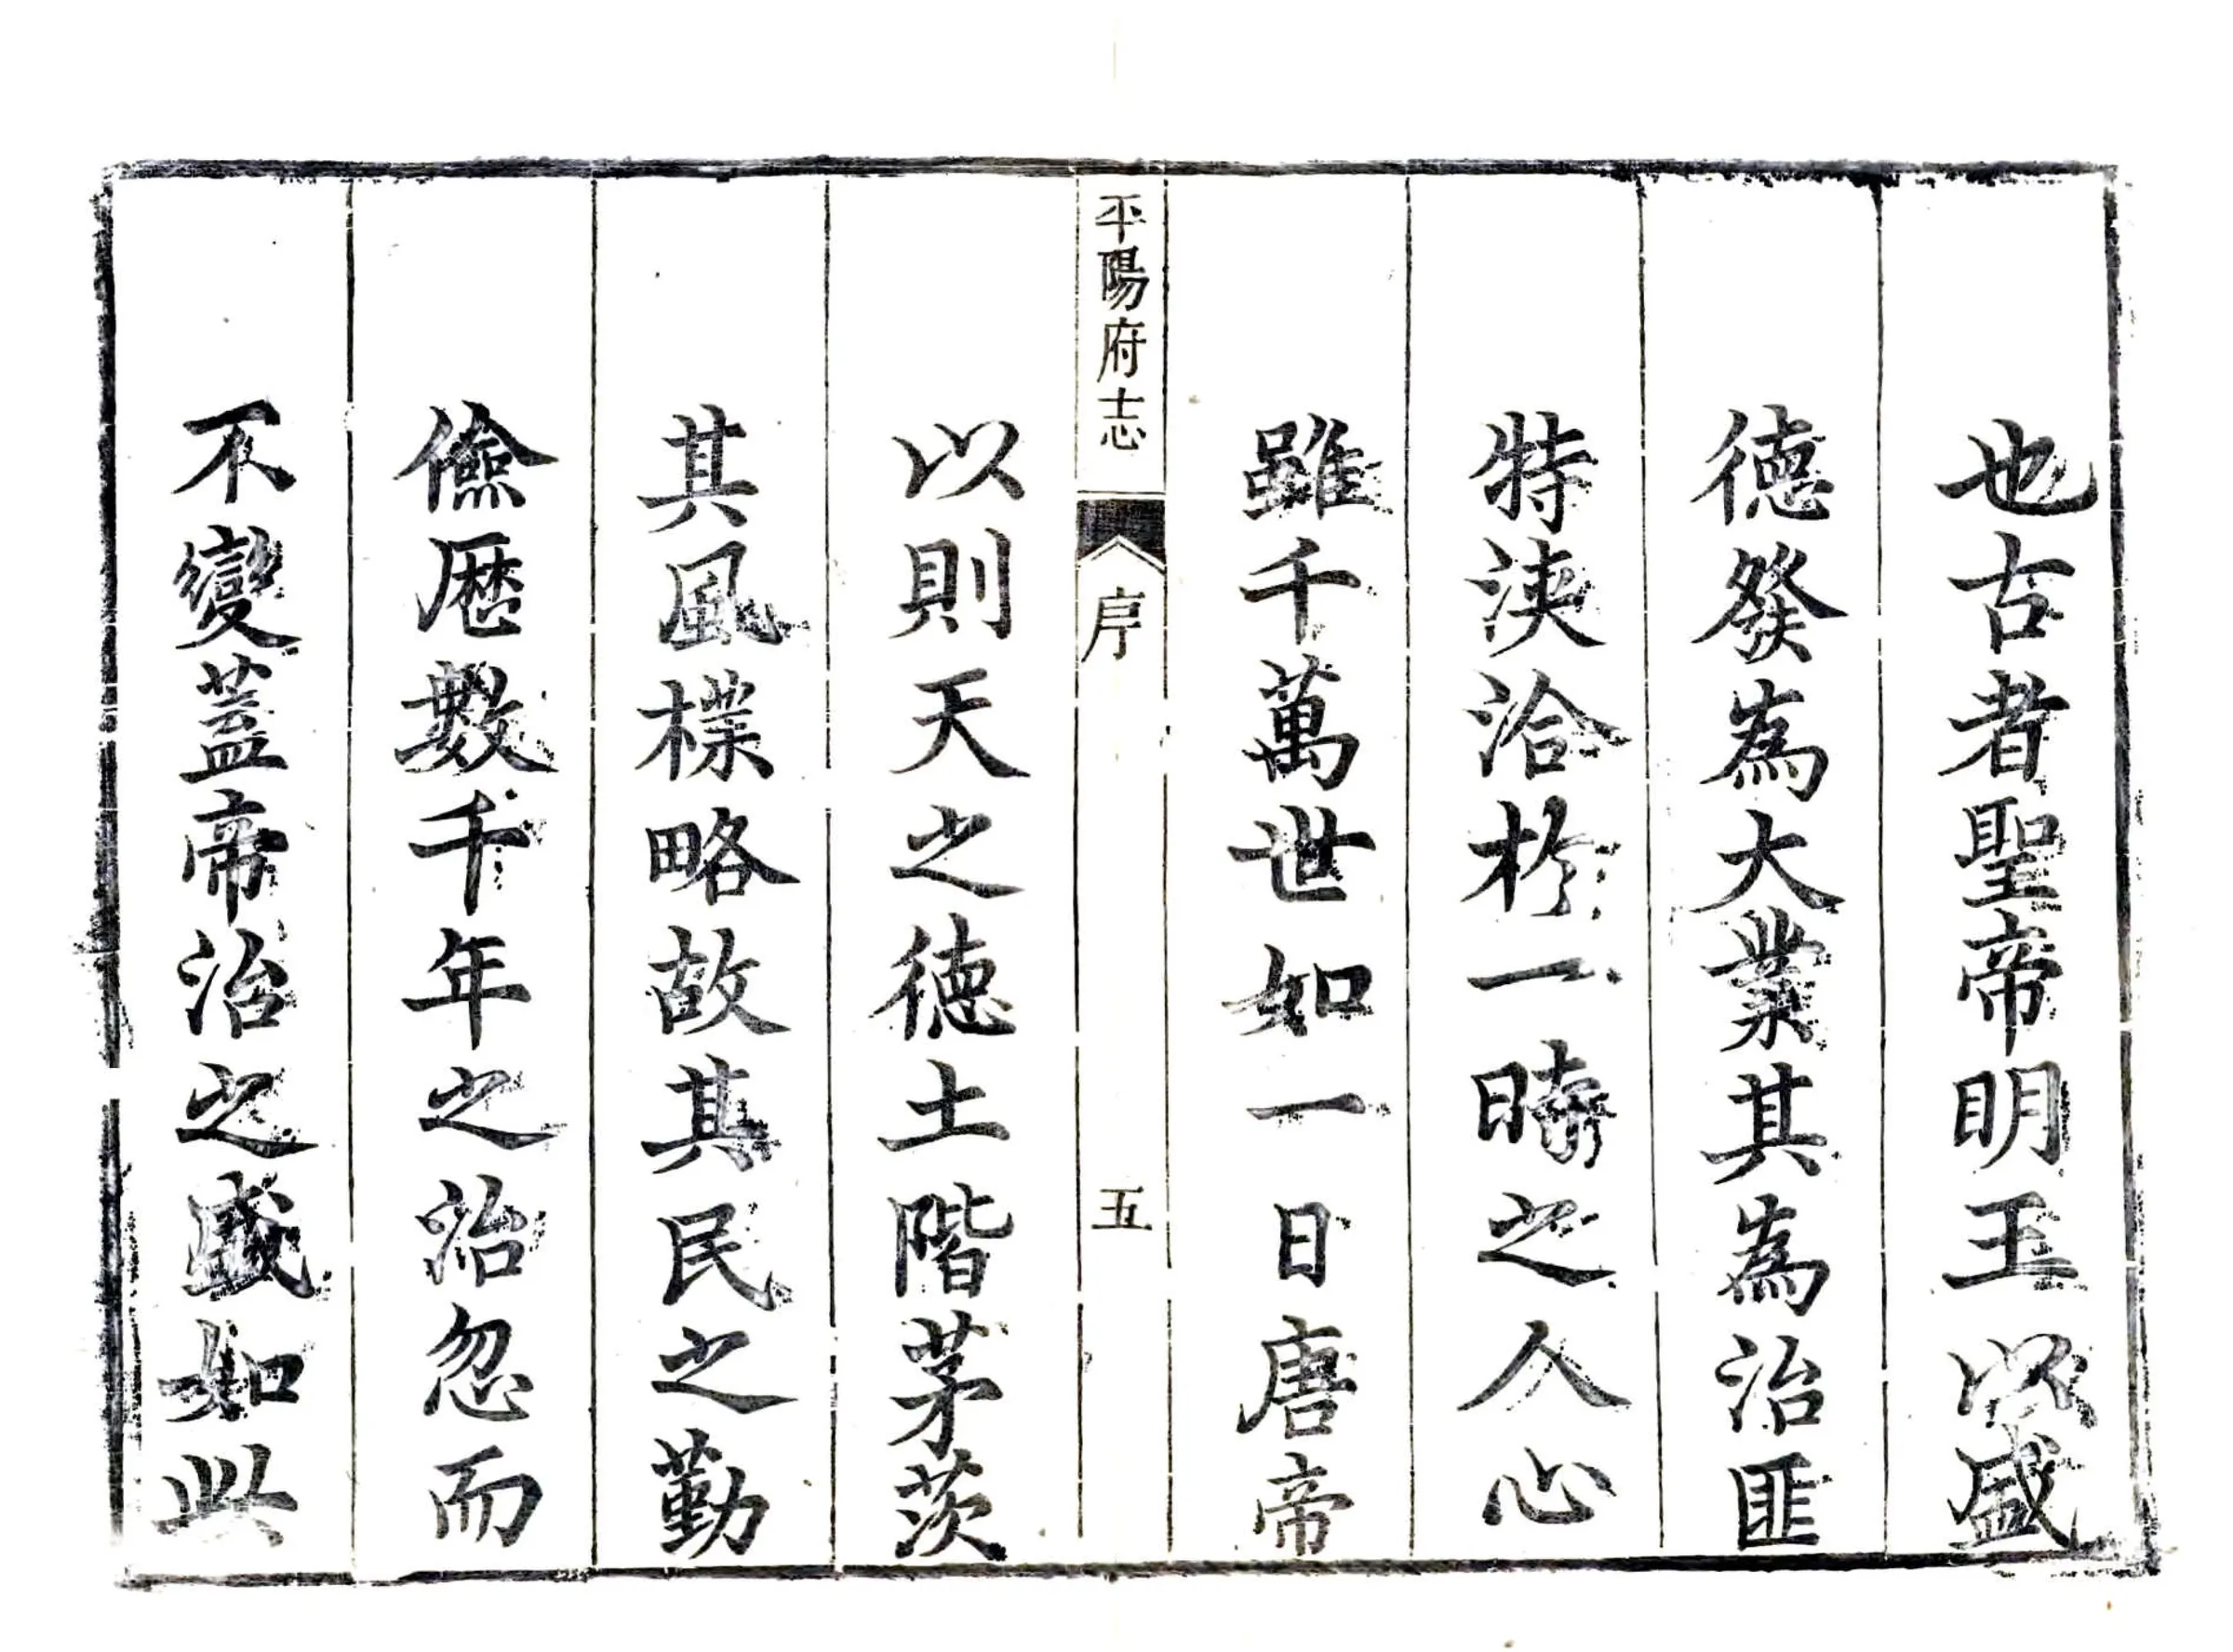 也古者聖帝明王以盛
德發為大業其為治匪
特浹洽於一時之人心
雖千萬世如一日唐帝
平陽府志 序 五
以則天之德土階茅茨
其風檏略故其民之勤
儉歷數千年之治忽而
不變蓋帝治之盛如此